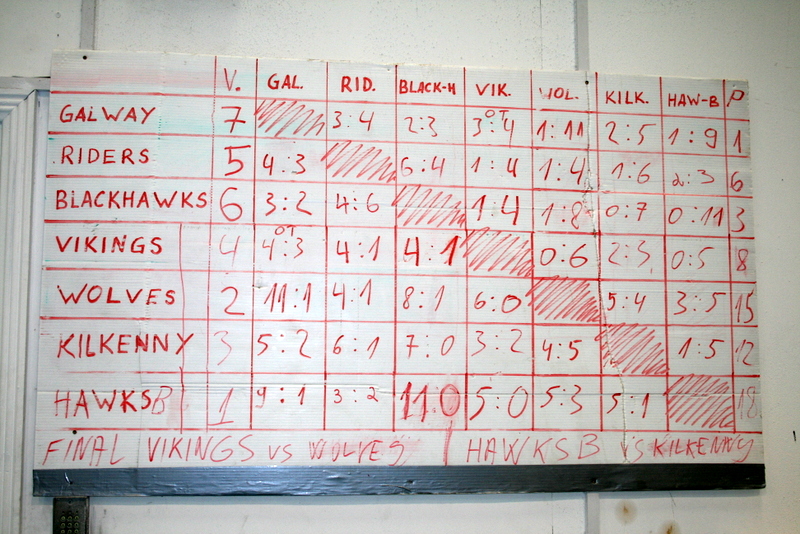 V. GAL. RID. BLACK-H VIK. WOL. KILK. HAW-B P
GALWAY 7 3:4 2:3 3:4 OT 1:11 2:5 1:9 1
RIDERS 5 4:3 6:4 1:4 1:4 1:6 2:3 6
BLACKHAWKS 6 3:2 4:6 1:4 1:8 0:7 0:11 3
VIKINGS 4 4:3 OT 4:1 4:1 0:6 2:3 0:5 8
WOLVES 2 11:1 4:1 8:1 6:0 5:4 3:5 15
KILKENNY 3 5:2 6:1 7:0 3:2 4:5 1:5 12
HAWKSB 1 9:1 3:2 11:0 5:0 5:3 5:1 18
FINAL VIKINGS VS WOLVES / HAWKS B VS KILKENNY